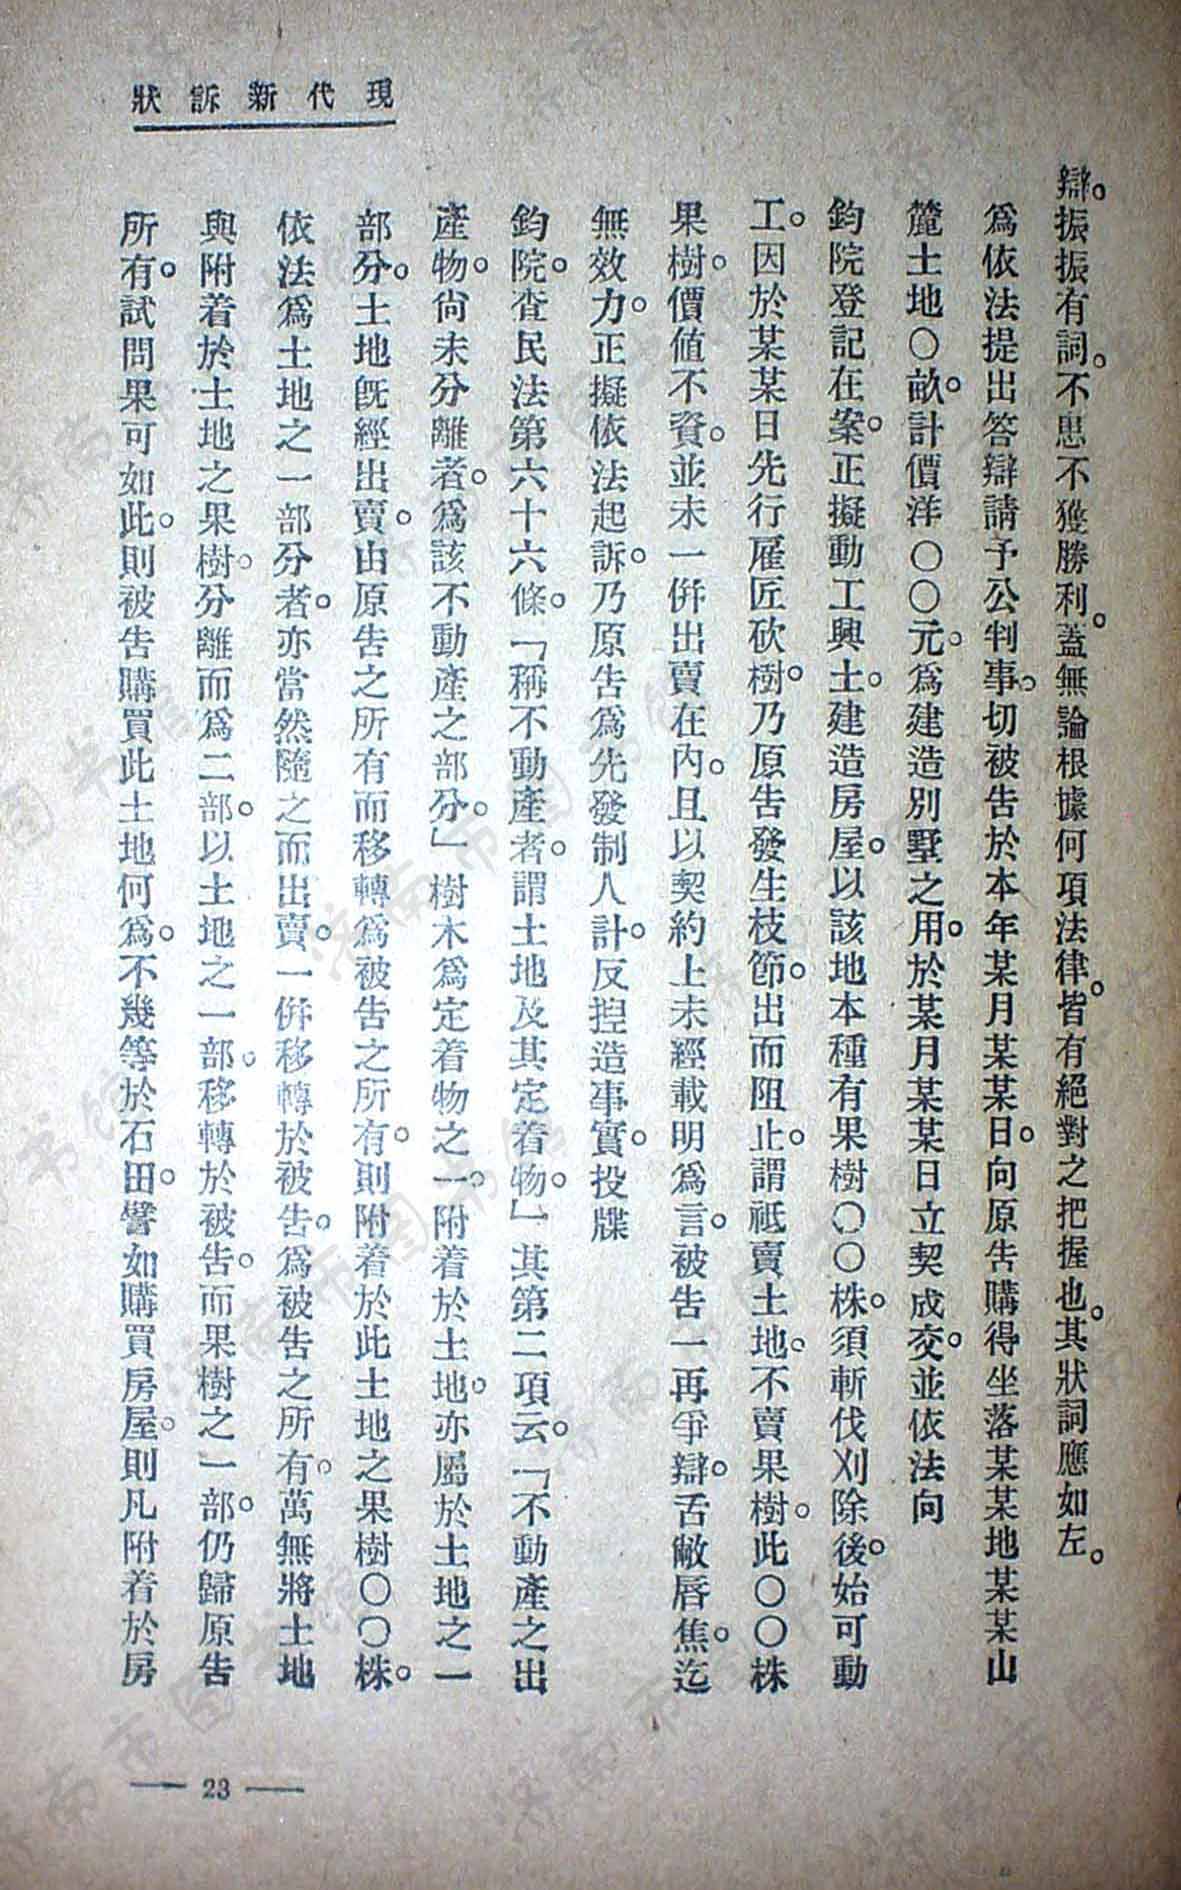 現代新訴狀
辯。振振有詞。不思不獲勝利。蓋無論根據何項法律。皆有絕對之把握也。其狀詞應如左。
爲依法提出答辯請予公判事。切被告於本年某月某某日。向原告購得坐落某某地某某山
麓土地〇畝。計價洋〇〇元。爲建造別墅之用。於某月某某日立契成交。並依法向
鈞院登記在案。正擬動工興土。建造房屋。以該地本種有果樹〇〇株。須斬伐刈除後。始可動
工。因於某某日先行雇匠砍樹。乃原告發生枝節。出而阻止。謂祗賣土地。不賣果樹。此〇〇株
果樹。價値不資。並未一併出賣在內。且以契約上未經載明爲言。被告一再爭辯。舌敝唇焦。迄
無效力。正擬依法起訴。乃原告爲先發制人計。反揑造事實。投牒
鈞院。查民法第六十六條。「稱不動產者。謂土地及其定着物。」其第二項云。「不動產之出
產物。尙未分離者。爲該不動產之部分。」樹木爲定着物之一。附着於土地。亦屬於土地之一
部分。土地旣經出賣。由原告之所有而移轉爲被告之所有。則附着於此土地之果樹〇〇株。
依法爲土地之一部分者。亦當然隨之而出賣。一併移轉於被告。爲被告之所有。萬無將土地
與附着於土地之果樹。分離而爲二部。以土地之一部。移轉於被告。而果樹之一部。仍歸原告
所有。試問果可如此。則被告購買此土地何爲。不幾等於石田。譬如購買房屋。則凡附着於房
— 23 —